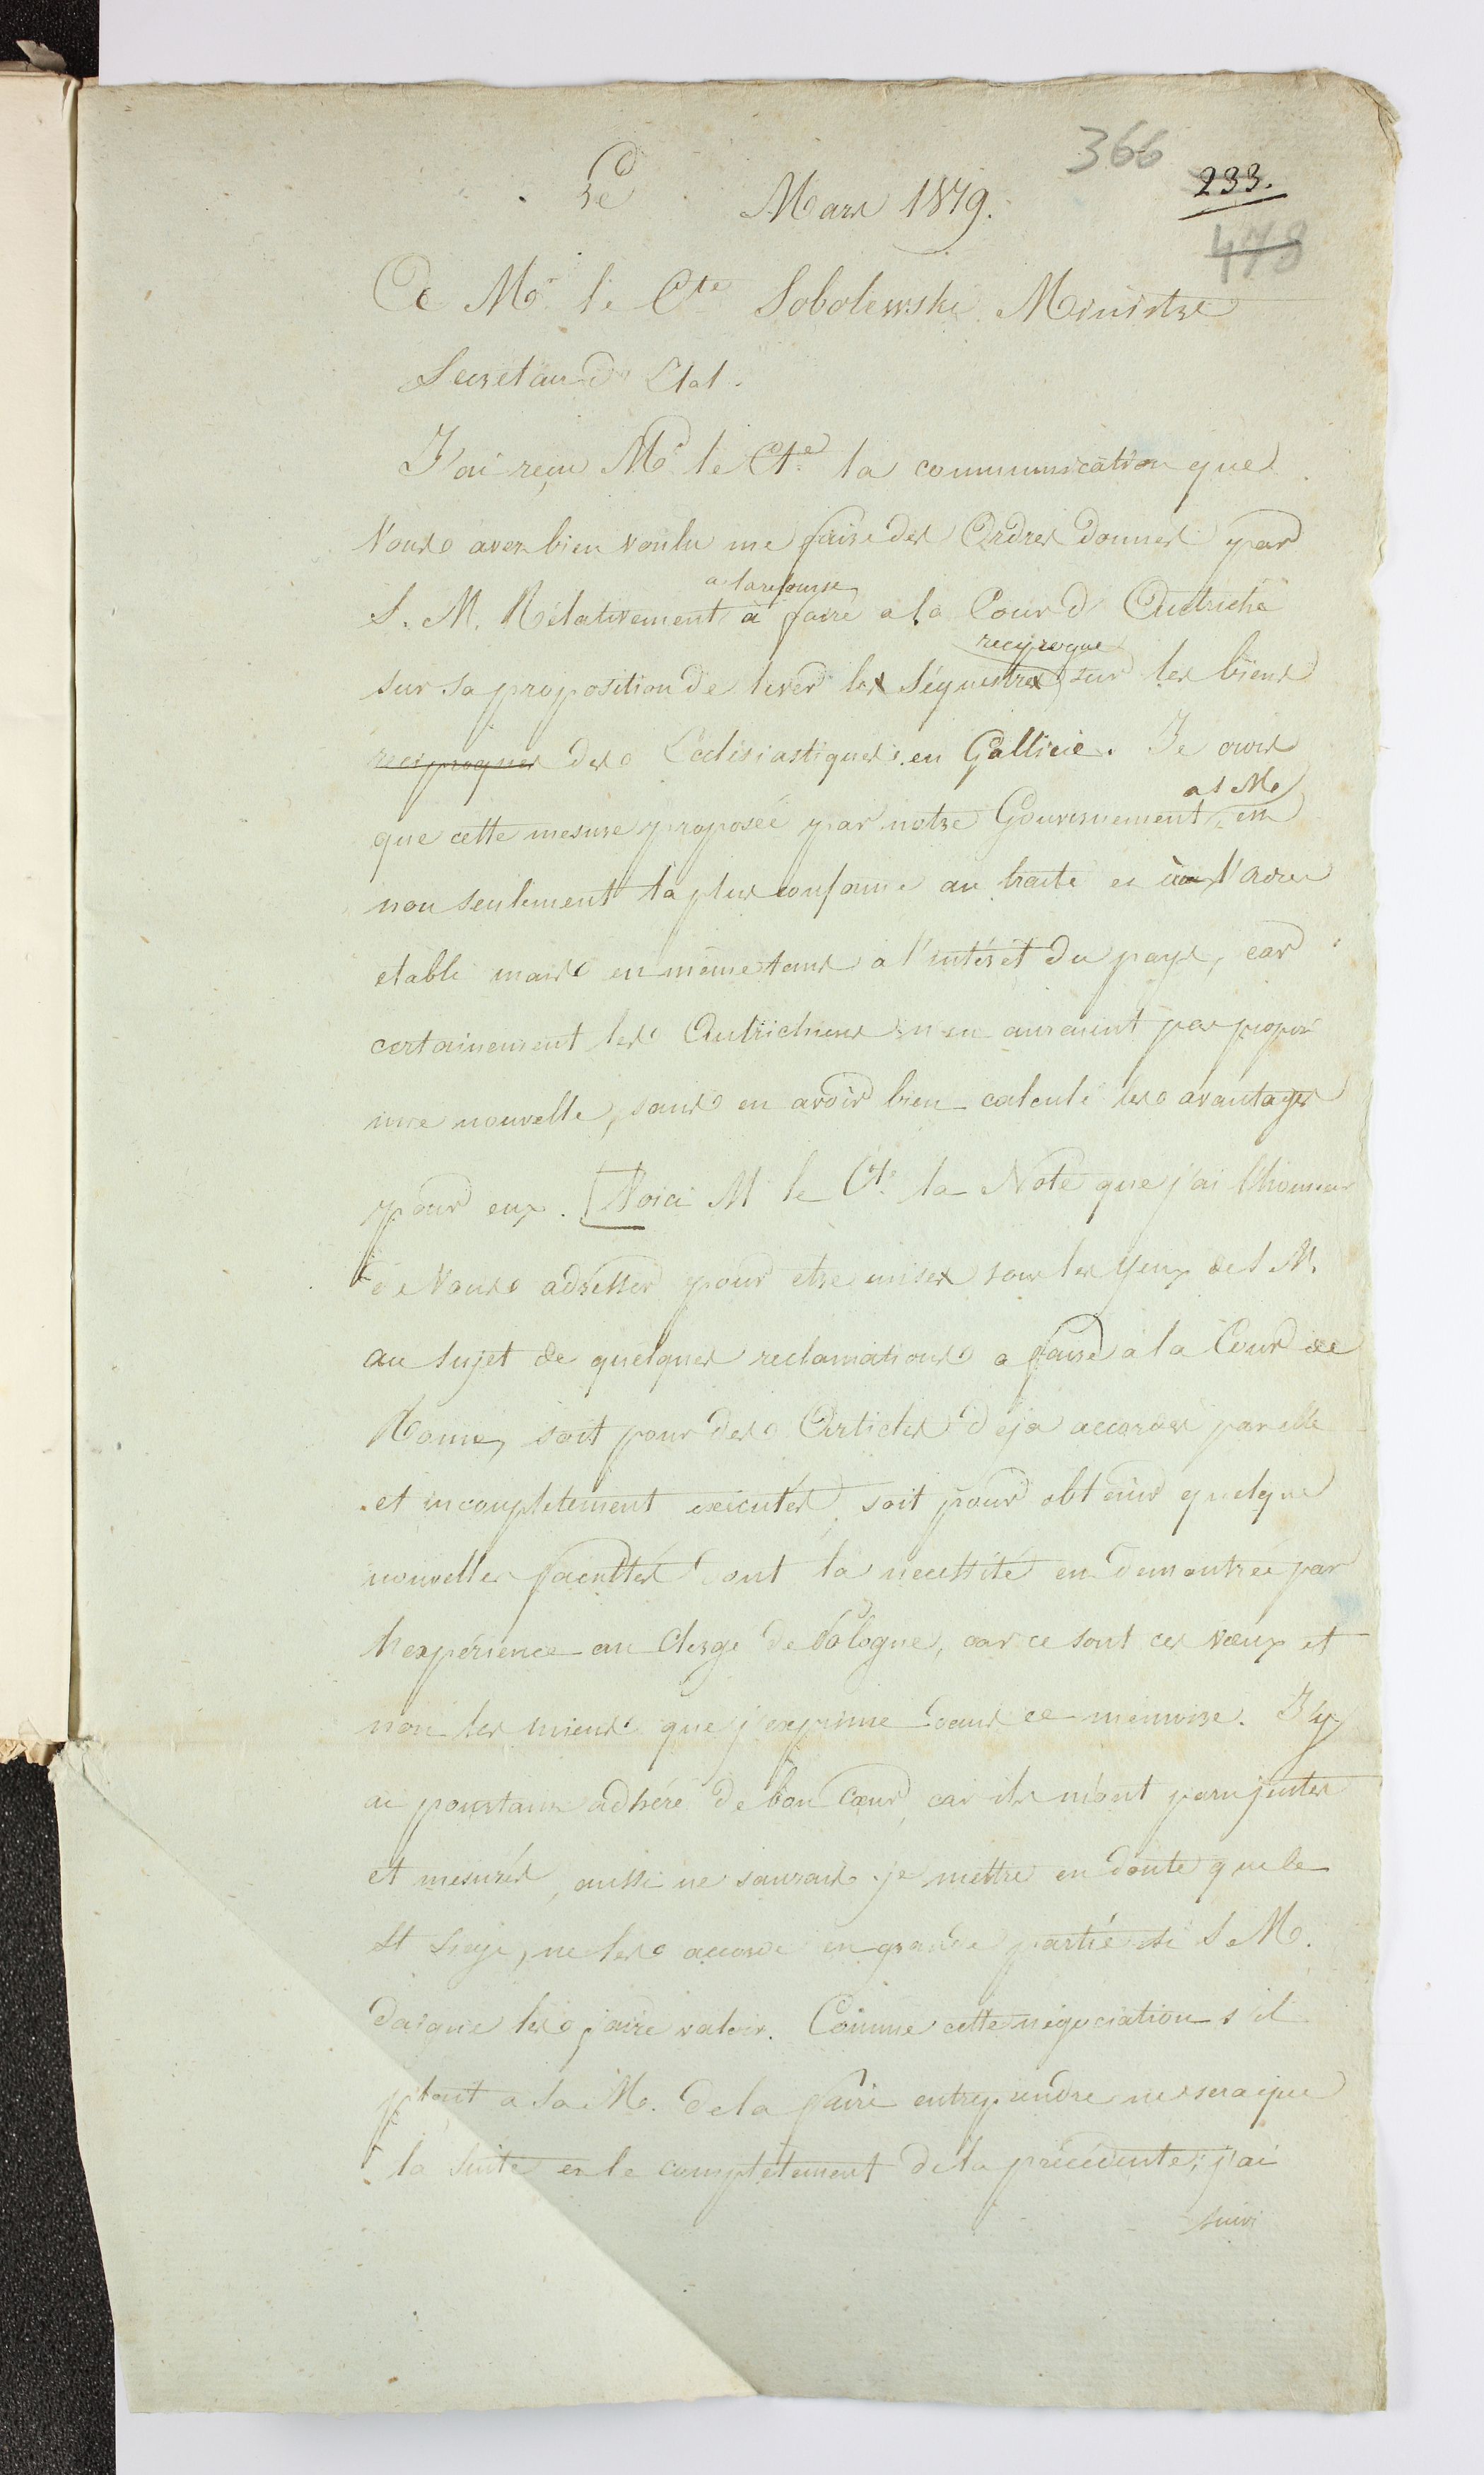 366
Le Mars 1819.
233.
478
A Mr le Cte Sobolewski Ministre
Secretaire d'Etat.
J'ai reçu Mr le Cte la communication que
Vous avez bien voulu me faire des Ordres donnés par
a la reponse
S. M. Relativement à faire a la Cour d'Autriche
reciproque
sur sa proposition de lever les Séquestres sur les biens
reciproques des Ecclésiastiques en Gallicie. Je crois
a S M
que cette mesure proposée par notre Gouvernement, est
non seulement la plus conforme au traité et à l'ordre
etabli mais en même tems a l'intérêt du pays, car
certainement les Autrichiens n'en auraient pas proposé
une nouvelle, sans en avoir bien calculé les avantages
pour eux. [Voici M le Cte la Note que j'ai l'honneur
de Vous adresser pour etre mise sous les yeux de S M.
au sujet de quelques reclamations a faire a la Cour de
Rome, soit pour des Articles déja accordés par elle
et incomplètement exécutés, soit pour obtenir quelque
nouvelles facultés dont la necessité est demontrée par
l'expérience au Clergé de Pologne, car ce sont ces vœux et
non les miens que j'exprime dans ce memoire. J'y
ai pourtant adhéré de bon Cœur, car ils m'ont paru justes
et mesurés, aussi ne saurais-je mettre en doute que le
St Siege, ne les accorde en grande partie si S. M.
daigne les faire valoir. Comme cette négociation s'il
plait a Sa M. de la faire entreprendre ne sera que
la suite et le completement de la précédente; j'ai
suivi